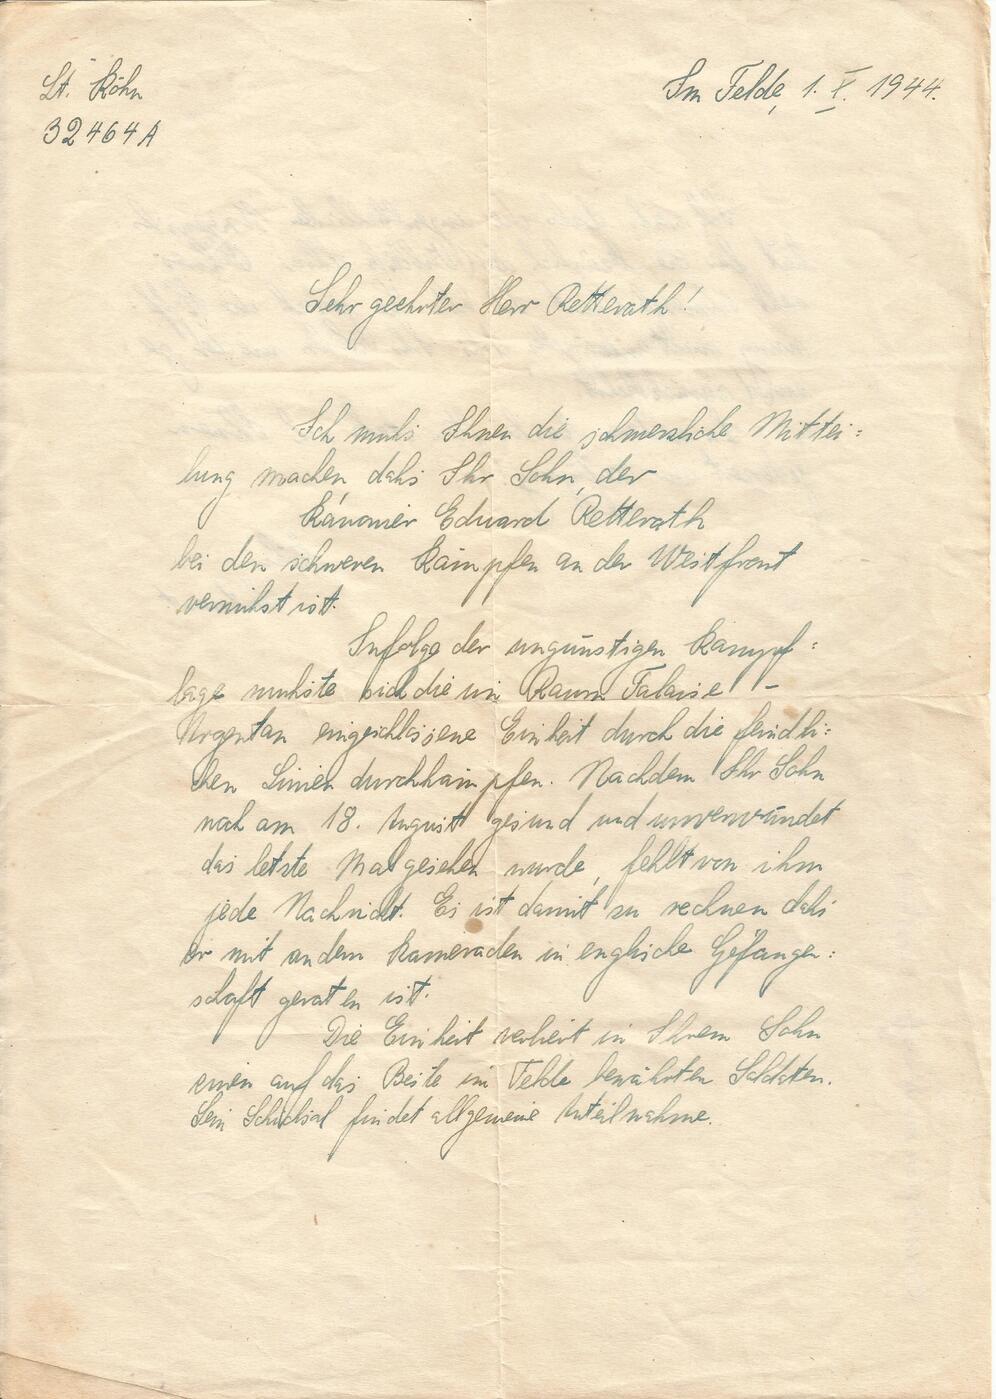 Lt. Köhn
32464A
Im Felde, 1. X. 1944.
Sehr geehrter Herr Retterath!
Ich muhs Ihnen die schmerzliche Mittei=
lung machen dahs Ihr Sohn, der
Kanonier Eduard Retterath
bei den schweren Kämpfen an der Westfront
vermihst ist.
Infolge der ungünstigen Kampf=
lage muhste sich die im Raum Falaise -
Argentan eingeschlossene Einheit durch die feindli=
chen Linien durchkämpfen. Nachdem Ihr Sohn
noch am 18. August gesund und unverwundet
das letzte Mal gesehen wurde, fehlt von ihm
jede Nachricht. Es ist damit zu rechnen dahs
er mit andern Kameraden in englische Gefangen=
schaft geraten ist.
Die Einheit verliert in Ihrem Sohn
einen auf das Beste im Felde bewährten Soldaten.
Sein Schicksal findet allgemeine Anteilnahme.